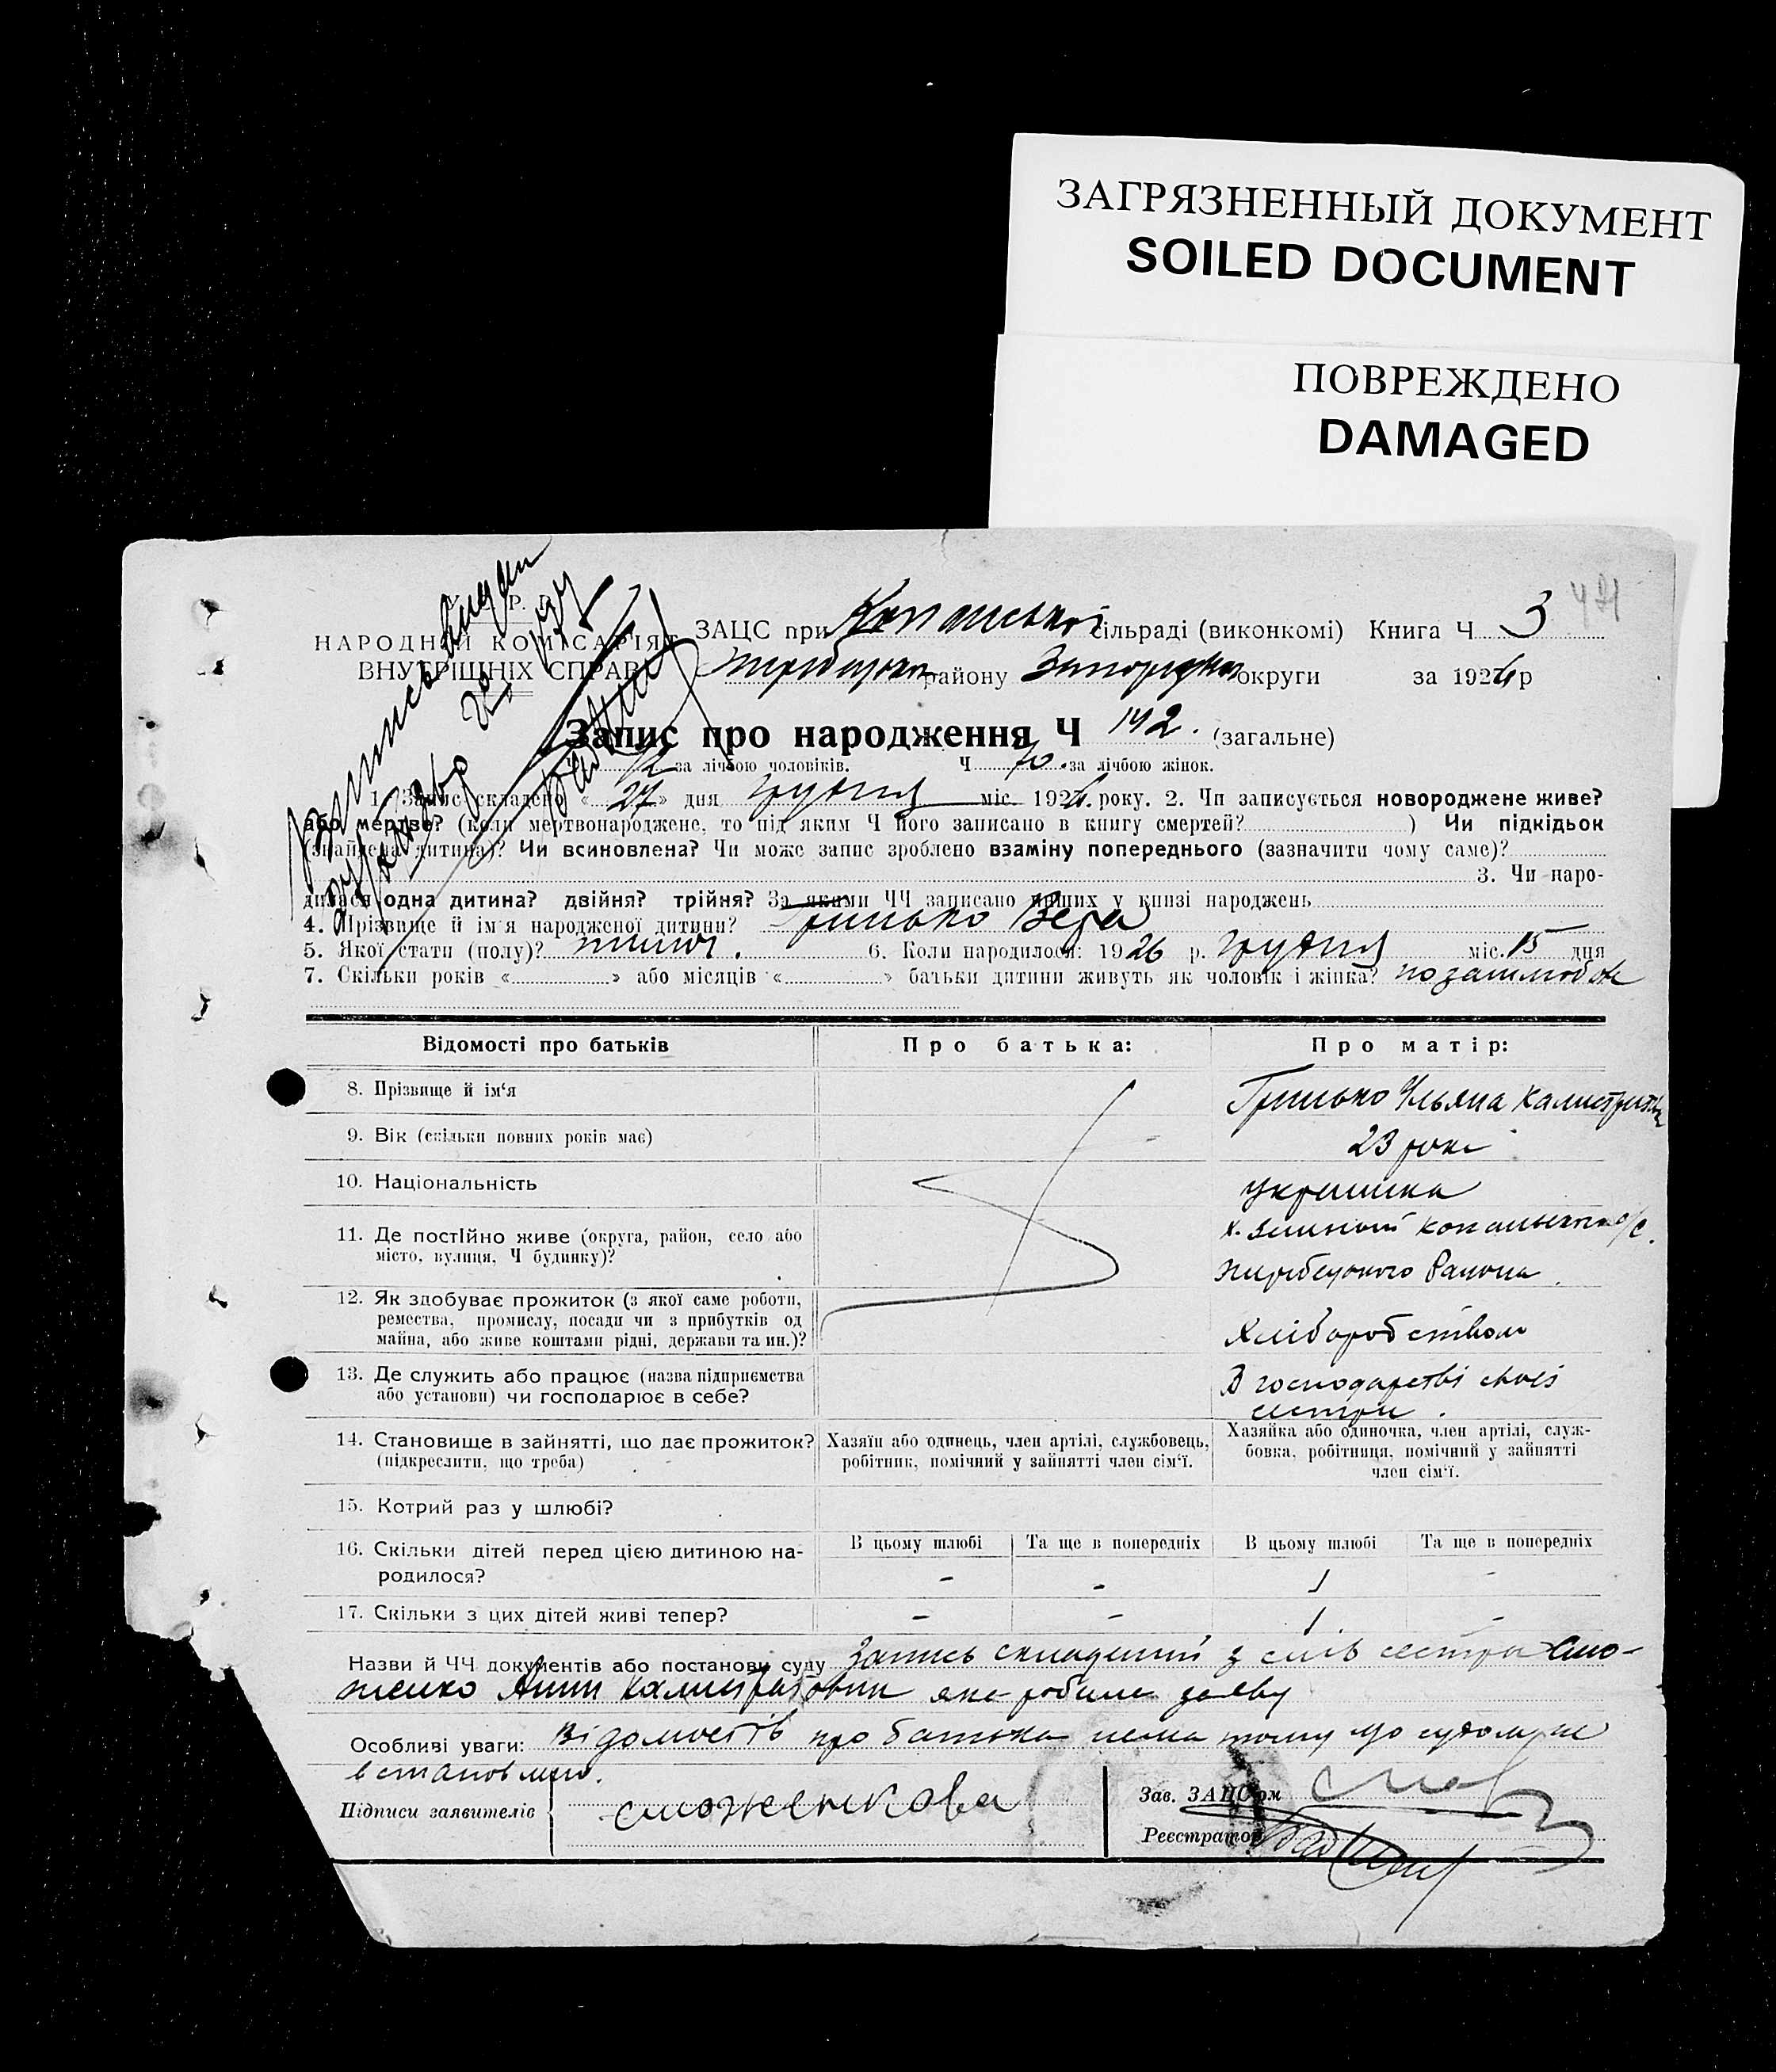 ЗАГРЯЗНЕННЫЙ ДОКУМЕНТ
SOILED DOCUMENT
ПОВРЕЖДЕНО
DAMAGED
НАРОДНІЙ КОМІСАРІЯТ
ВНУТРІШНІХ СПРАВ
ЗАЦС при Копанської сільраді (виконкомі) Книга Ч 3
району округи за 1926 р
Запис про народження Ч 142. (загальне)
72 за лічбою чоловіків. Ч 70. за лічбою жінок.
1. Запис складено « 27 » дня грудня міс. 1926. року. 2. Чи записується новороджене живе?
або мертве? (коли мертвонароджене, то під яким Ч його записано в книгу смертей? ) Чи підкідьок
(знайдена дитина)? Чи всиновлена? Чи може запис зроблено взаміну попереднього (зазначити чому саме)?
3. Чи наро-
дилася одна дитина? двійня? трійня? За якими ЧЧ записано инших у книзі народжень
4. Прізвище й ім'я народженої дитини? Гринько Вера
5. Якої стати (полу)? жиноч. 6. Коли народилося: 1926 р. грудня міс. 15 дня
7. Скільки років « » або місяців « » батьки дитини живуть як чоловік і жінка? позашлюбок
Відомості про батьків Про батька: Про матір:
8. Прізвище й ім'я Гринько Ульяна Калистратівна
9. Вік (скільки повних років має) 23 роки
10. Національність украинка
11. Де постійно живе (округа, район, село або х. Зелений Копанської с/с.
місто, вулиця, Ч будинку)? Жеребецкого Району.
12. Як здобуває прожиток (з якої саме роботи,
ремества, промислу, посади чи з прибутків од
майна, або живе коштами рідні, держави та ин.)? Хліборобством
13. Де служить або працює (назва підприємства В господарстві своєї
або установи) чи господарює в себе? сестри.
14. Становище в зайнятті, що дає прожиток? Хазяїн або одинець, член артілі, службовець, Хазяйка або одиночка, член артілі, служ-
(підкреслити, що треба) робітник, помічний у зайнятті член сім'ї. бовка, робітниця, помічний у зайнятті
член сім'ї.
15. Котрий раз у шлюбі?
16. Скільки дітей перед цією дитиною на- В цьому шлюбі Та ще в попередніх В цьому шлюбі Та ще в попередніх
родилося? - - 1 -
17. Скільки з цих дітей живі тепер? - - 1 -
Назви й ЧЧ документів або постанови суду Запись складений з слів сестри Смо-
женко Анни Калистратовни яка робила заяву
Особливі уваги: Відомостів про батька нема тому що судом не
встановлено.
Підписи заявителів сможенкова Зав. ЗАЦС'ом
Реєстратор